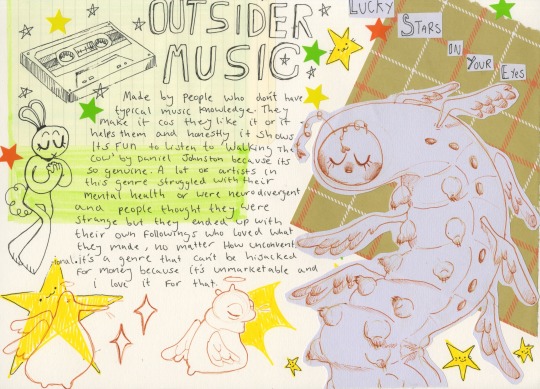 OUTSIDER
MUSIC
Made by people who don't have
typical music knowledge. They
make it cos they like it or it
helps them and honestly it shows
Its FUN to listen to 'Walking The
Cow' by Daniel Johnston because its
so genuine. A lot of artists in
this genre struggled with their
mental health or were neurodivergent
and people thought they were
strange but they ended up with
their own followings who loved what
they made, no matter how unconvent-
ional. it's a genre that can't be hijacked
for money because its unmarketable and
i love it for that.
LUCKY
STARS
ON
YOUR
EYES